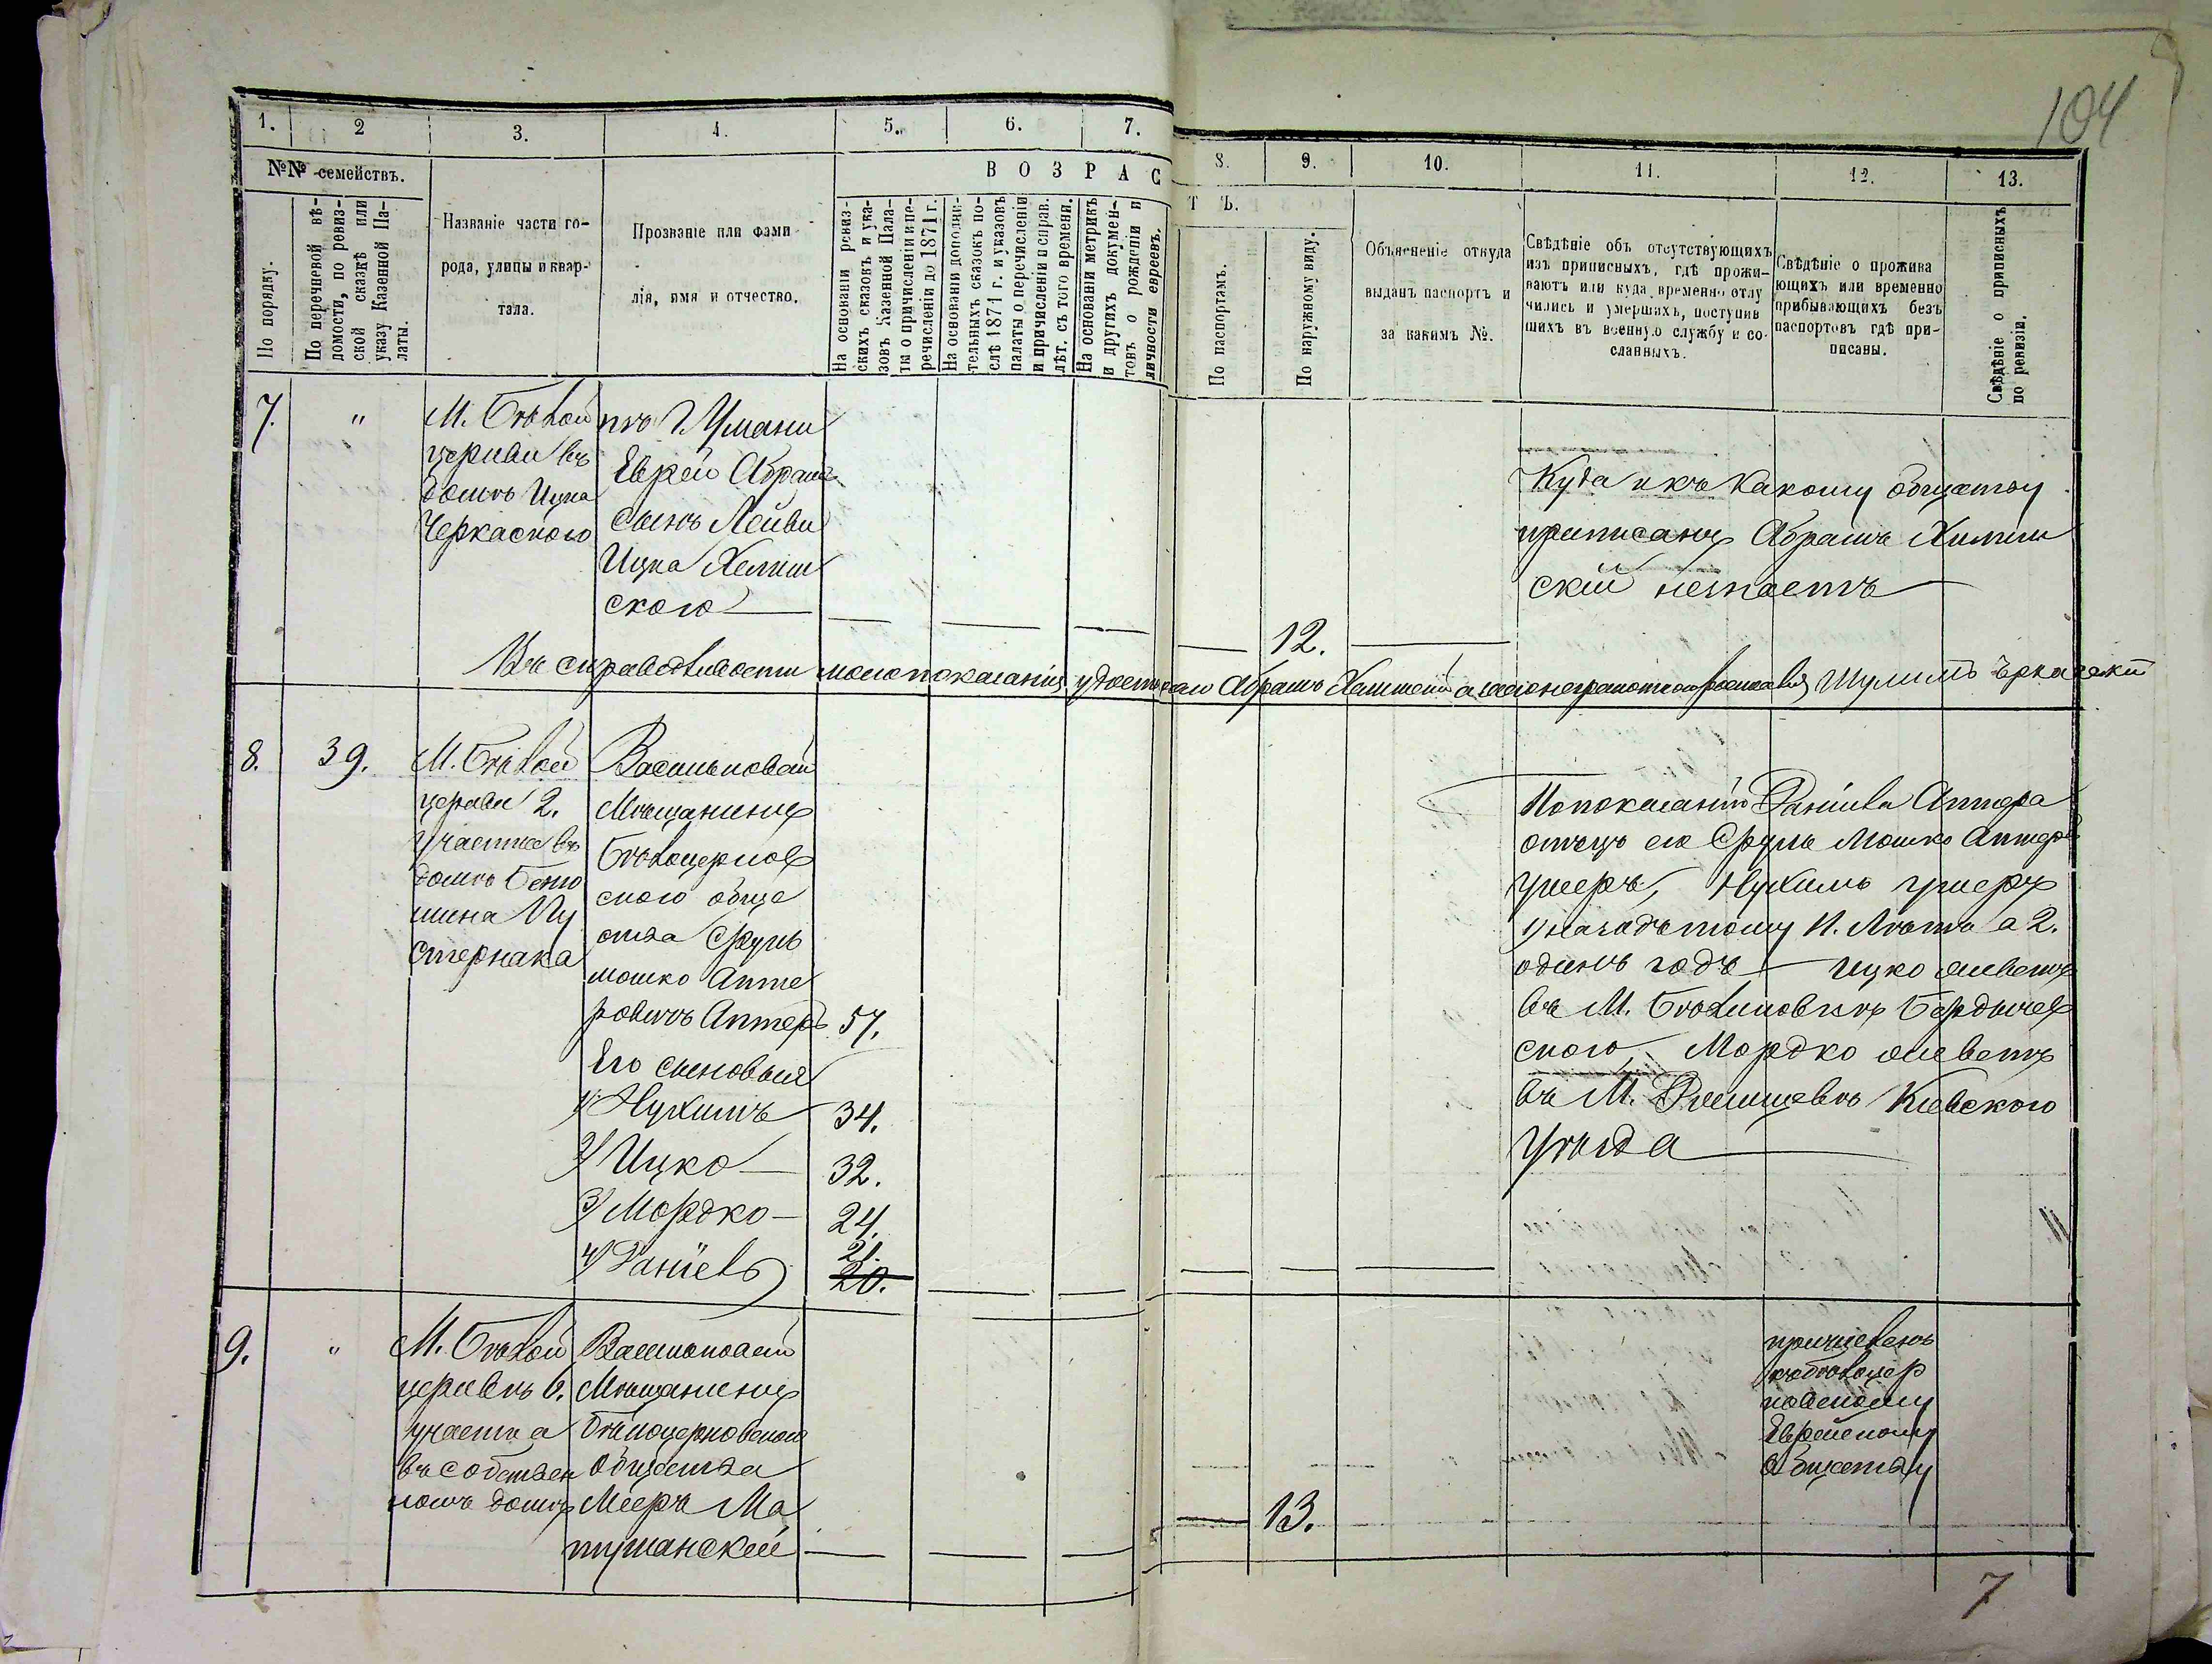 104
1. 2 3. 4. 5. 6. 7. 8. 9. 10. 11. 12. 13.
№№ семействъ.
По порядку.
По перечневой вѣ-
домости, по ревиз-
ской сказкѣ или
указу Казенной Па-
латы.
Названіе части го-
рода, улицы и квар-
тала.
Прозваніе или фами
лія, имя и отчество.
ВОЗРАС
ТЪ.
На основаніи ревиз-
скихъ сказокъ и ука-
зовъ Казенной Пала-
ты о причисленіи и пе-
речисленіи до 1871 г.
На основаніи дополни-
тельныхъ сказокъ по-
слѣ 1871 г. и указовъ
палаты о перечисленіи
и причисленіи и справ.
лѣт. съ того времени.
На основаніи метрикъ
и другихъ докумен-
товъ о рожденіи и
личности евреевъ.
По паспортамъ.
По наружному виду.
Объясненіе откуда
выданъ паспортъ и
за какимъ №.
Свѣдѣніе объ отсутствующихъ
изъ приписныхъ, гдѣ прожи-
ваютъ или куда временно отлу
чились и умершихъ, поступив
шихъ въ военную службу и со-
сланныхъ.
Свѣдѣніе о прожива
ющихъ или временно
прибывающихъ безъ
паспортовъ гдѣ при-
писаны.
Свѣдѣніе о приписныхъ
по ревизіи.
7. "
М. Бѣлой
церкви въ
домѣ Ицка
Черкаского
Г. Умани
Еврей Абрамъ
сынъ Лейви
Ицка Хелмш
ского
12.
Куда и къ какому обществу
приписанъ Абрамъ Хилмш
скій незнаетъ
Въ справедливости моего показанія Абрамъ Шулимъ
8. 39.
М. Бѣлой
церкви 2.
участка въ
домѣ Беню
мина Пу
стернака
Васильковскій
Мѣщанинъ
Бѣлоцерков
ского обще
ства Сруль
мошко Апте
ровичъ Аптеръ 57.
Его сыновья
1) Нухимъ 34.
2) Ицко 32.
3) Мордко 24.
4) Даніель 21.
20.
По показанію Даніила Аптера
отецъ его Сруль Мошко Аптеръ
умеръ, Нухимъ умеръ
1) назадъ тому 11. лѣтъ а 2.
одинъ годъ Ицко живетъ
въ М. Бѣлиловкѣ Бердичев
ского, Мордко живетъ
въ М. Ржищевѣ Кіевского
Уѣзда
9. "
М. Бѣлой
церквѣ 6.
участка
въ собствен
номъ домѣ
Васильковскій
Мѣщанинъ
Бѣлоцерковского
Общества
Мееръ Ма
тушанскій
13.
причисленъ
къ бѣлоцер
ковскому
Еврейскому
Обществу
7